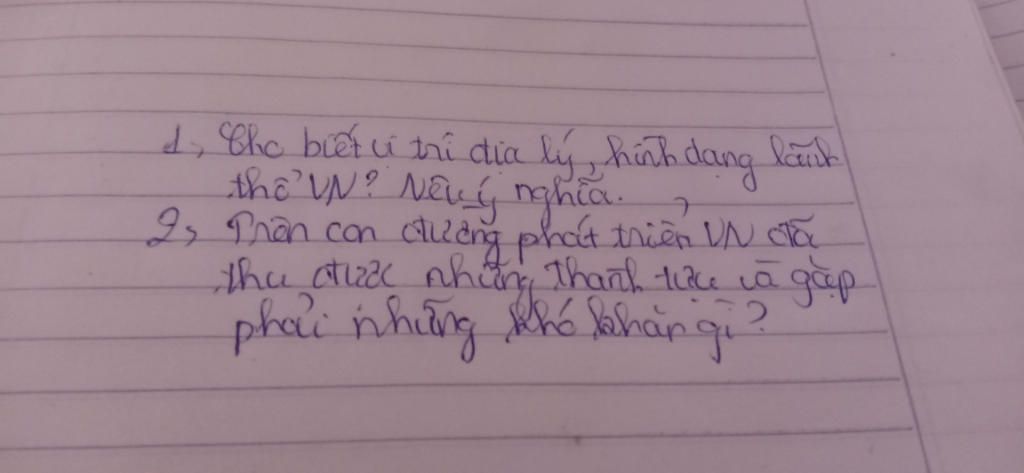 1, Cho biết vị trí địa lý, hình dạng lãnh
thổ VN? Nêu ý nghĩa.
2, Trên con đường phát triển VN đã
thu được những thành tựu và gặp
phải những khó khăn gì?